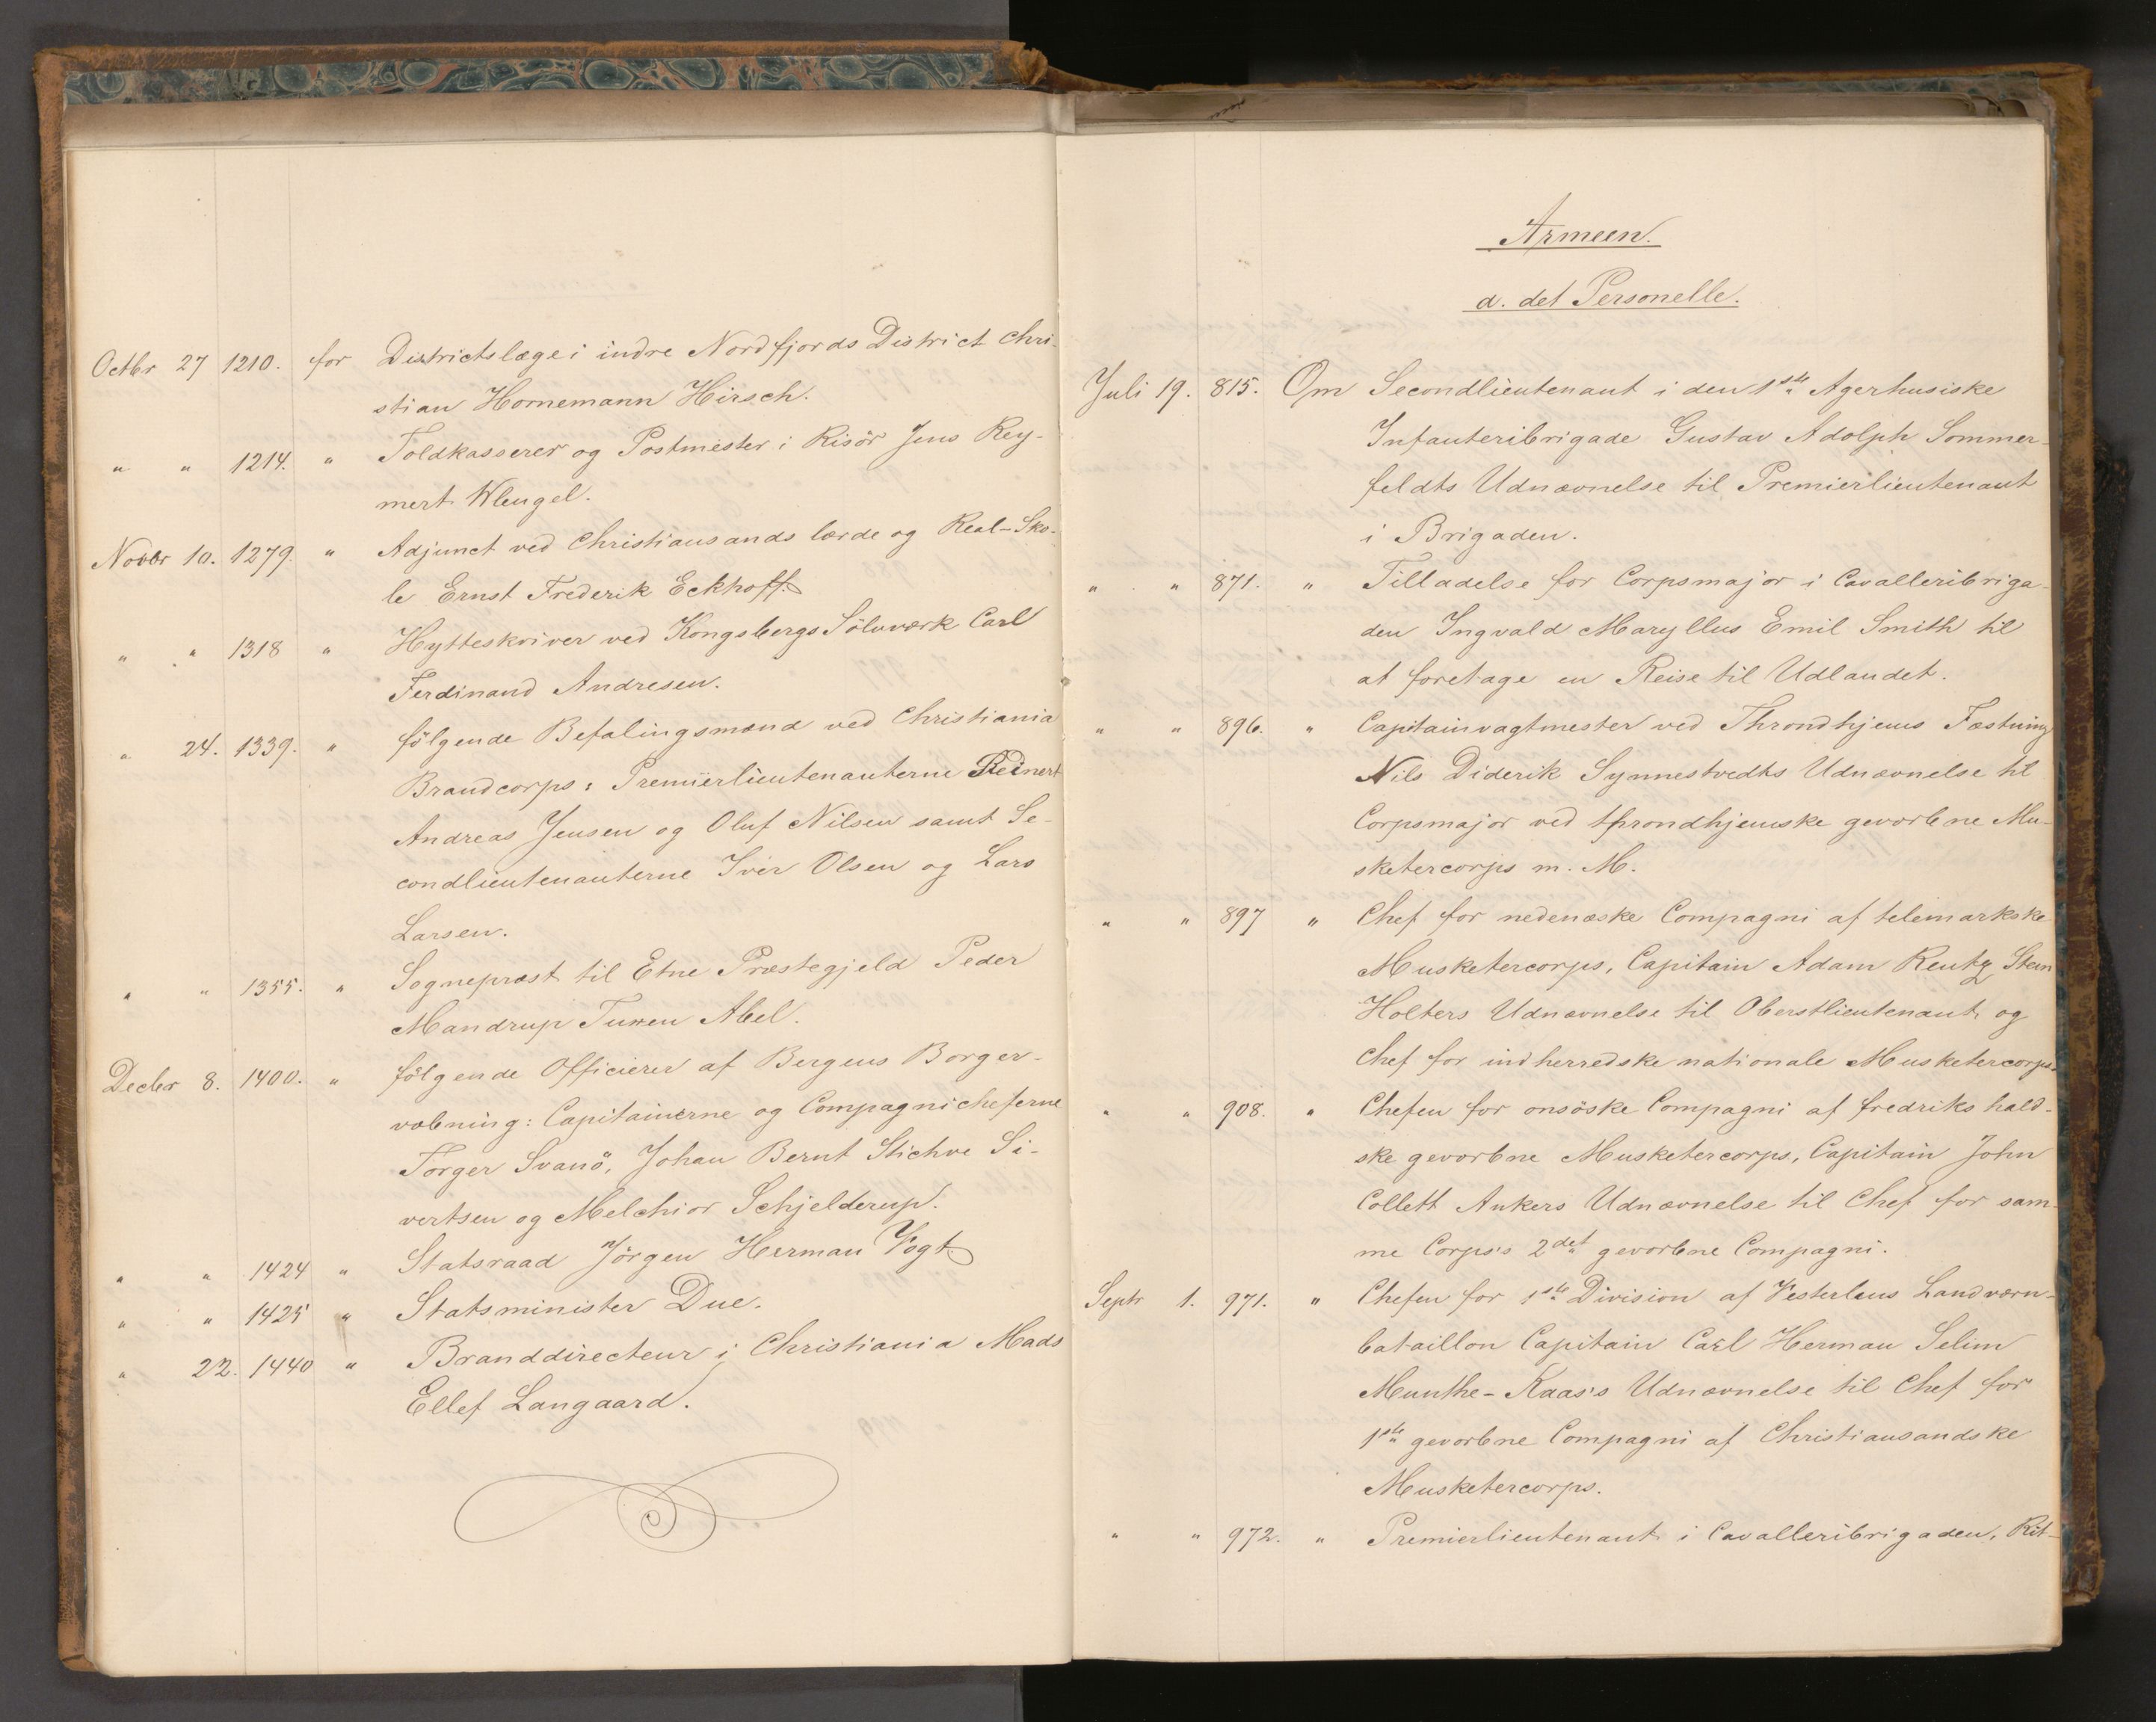 Octbr 27 1210. for Districtslæge i indre Nordfjords District Chri-
stian Hornemann Hirsch.
" " 1214. " Toldkasserer og Postmester i Risör Jens Rey-
mert Wleugel.
Novbr 10. 1279. " Adjunct ved Christiansands lærde og Real-Sko-
le Ernst Frederik Eckhoff.
" " 1318 " Hytteskriver ved Kongsbergs Sölvværk Carl
Ferdinand Andresen.
" 24. 1339. " fölgende Befalingsmænd ved Christiania
Brandcorps: Premierlieutenanterne Reinert
Andreas Jensen og Oluf Nilsen samt Se-
condlieutenanterne Iver Olsen og Lars
Larsen.
" " 1355. " Sognepræst til Etne Præstegjeld Peder
Mandrup Tuxen Abel.
Decbr 8. 1400. " fölgende Officierer af Bergens Borger-
væbning: Capitainerne og Compagnicheferne
Torger Svanö, Johan Bernt Stichve Si-
vertsen og Melchior Schjelderup.
" " 1424 " Statsraad Jörgen Herman Vogt.
" " 1425 " Statsminister Due.
" 22. 1440 " Branddirecteur i Christiania Mads
Ellef Langaard.
Armeen.
a. det Personelle.
Juli 19. 815. Om Secondlieutenant i den 1ste Agerhusiske
Infanteribrigade Gustav Adolph Sommer-
feldts Udnævnelse til Premierlieutenant
i Brigaden.
" " 871. " Tilladelse for Corpsmajor i Cavalleribriga-
den Ingvald Maryllus Emil Smith til
at foretage en Reise til Udlandet.
" " 896. " Capitainvagtmester ved Throndhjems Fæstning
Nils Diderik Synnestvedts Udnævnelse til
Corpsmajor ved throndhjemske gevorbne Mu-
sketercorps m. M.
" " 897 " Chef for nedenæske Compagni af telemarkske
Musketercorps, Capitain Adam Rentz Sten
Holters Udnævnelse til Oberstlieutenant og
Chef for indherredske nationale Musketercorps.
" " 908. " Chefen for onsöske Compagni af fredrikshald-
ske gevorbne Musketercorps, Capitain John
Collett Ankers Udnævnelse til Chef for sam-
me Corps's 2det gevorbne Compagni.
Septr 1. 971. " Chefen for 1ste Division af Vesterlens Landværn-
bataillon Capitain Carl Herman Selim
Munthe-Kaas's Udnævnelse til Chef for
1ste gevorbne Compagni af Christiansandske
Musketercorps.
" " 972. " Premierlieutenant i Cavalleribrigaden, Rit-